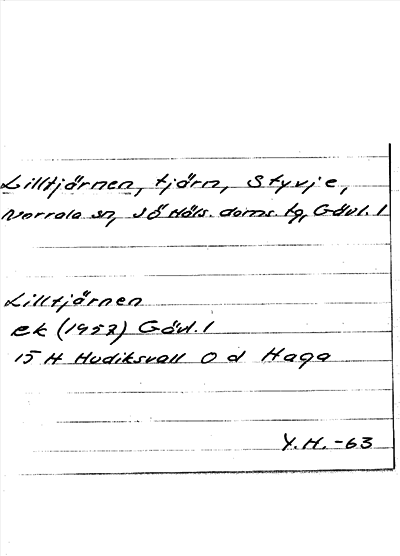 Lilltjärnen, tjärn, Styvje,
Norrala sn, SÖ Häls. doms. tg, Gävl. l
Lilltjärnen
ek (1957) Gävl. l
15 H Hudiksvall O d Haga
Y.H. -63